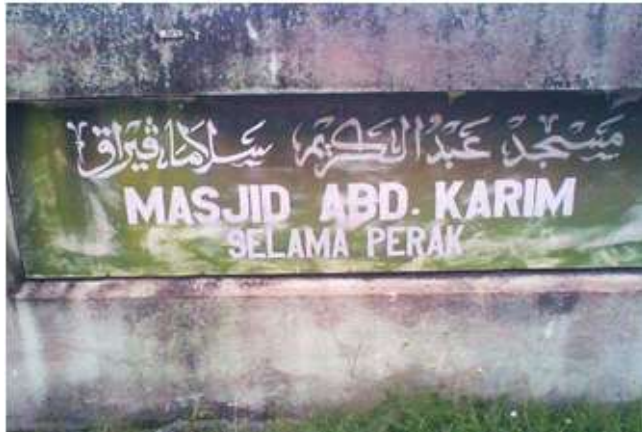 مسجد عبدالكريم سلاما ڤيراق
MASJID ABD. KARIM
SELAMA PERAK